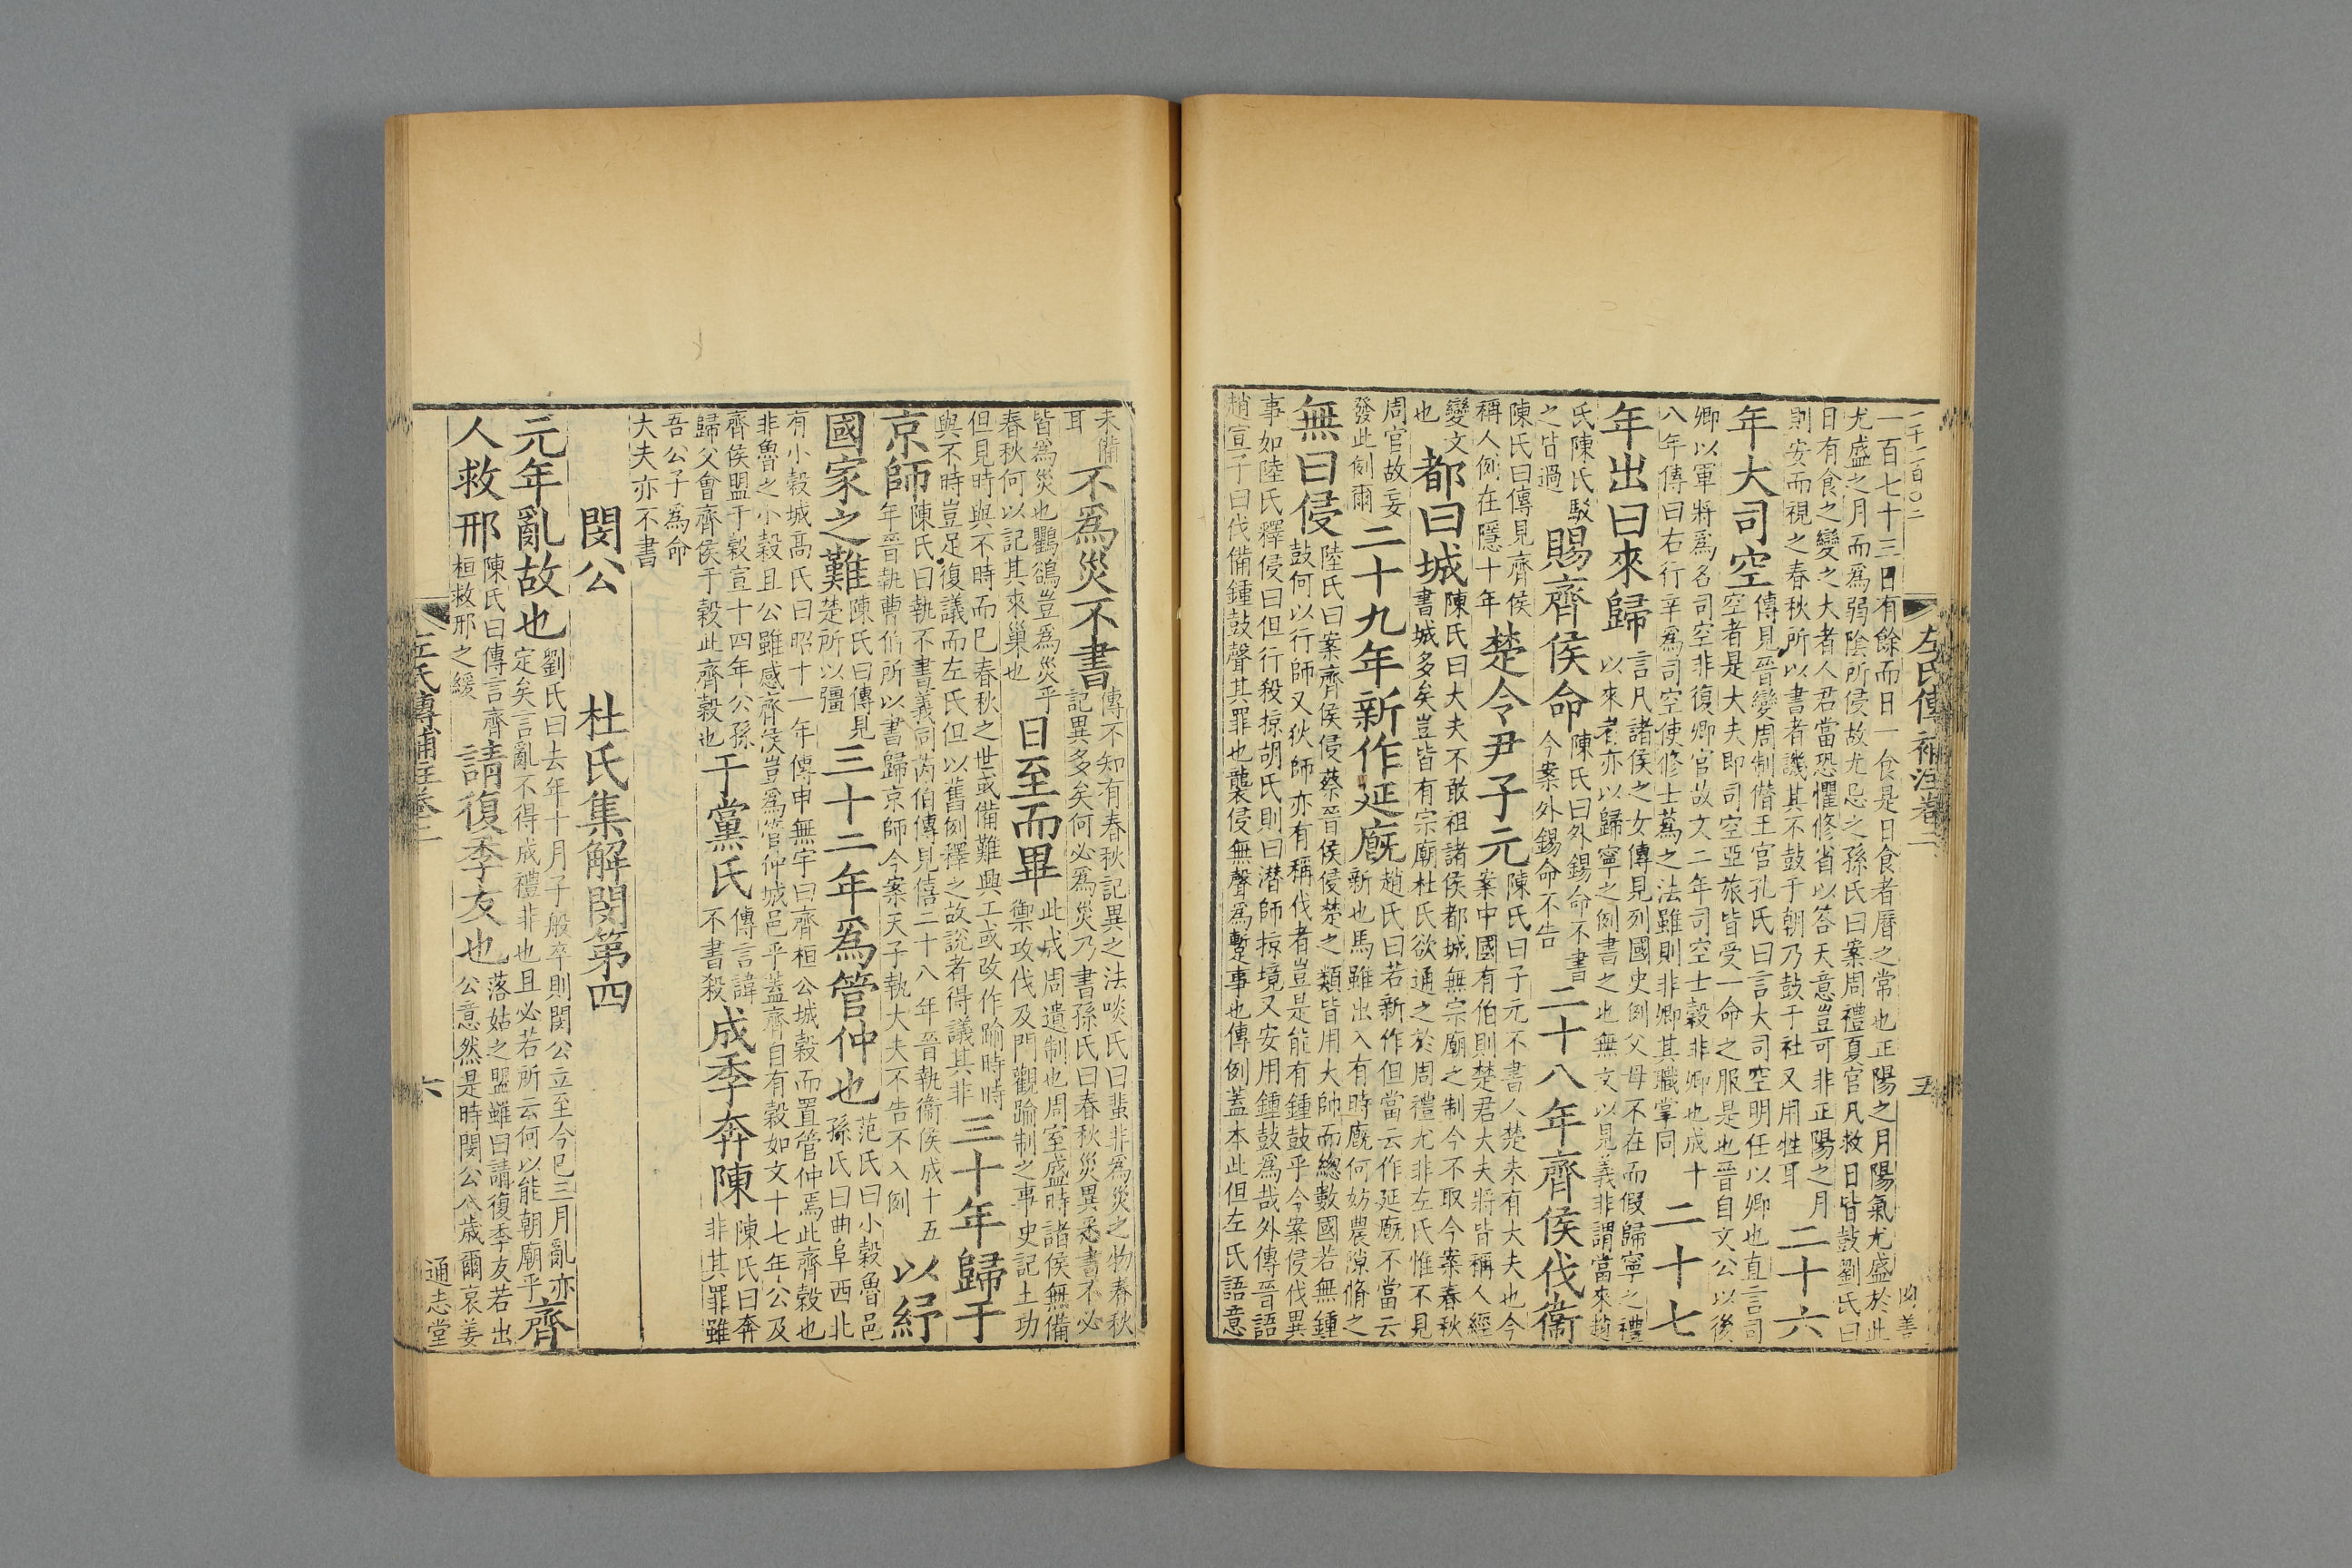 二千二百〇二 左氏傳補注卷二 五
一百七十三日有餘而日一食是日食者曆之常也正陽之月陽氣尤盛於此
尤盛之月而爲弱陰所侵故尤忌之孫氏曰案周禮夏官凡救日皆鼓劉氏曰
日有食之變之大者人君當恐懼修省以答天意豈可非正陽之月則安而視之春秋所以書者譏其不鼓于朝乃鼓于社又用牲耳二十六
年大司空傳見晉變周制僭王官孔氏曰言大司空明任以卿也直言司空者是大夫即司空亞旅皆受一命之服是也晉自文公以後
卿以軍將爲名司空非復卿官故文二年司空士縠非卿也成十八年傳曰右行辛爲司空使修士蒍之法雖則非卿其職掌同二十七
年出曰來歸言凡諸侯之女傳見列國史例父母不在而假歸寧之禮以來者亦以歸寧之例書之也無文以見義非謂當來趙
氏陳氏駁之甘過賜齊侯命陳氏曰外錫命不書今案外錫命不告二十八年齊侯伐衞
陳氏曰傳見齊侯稱人例在隱十年楚令尹子元陳氏曰子元不書人楚未有大夫也今案中國有伯則楚君大夫將皆稱人經
變文也都曰城陳氏曰大夫不敢祖諸侯都城無宗廟之制今不取今案春秋書城多矣豈皆有宗廟杜氏欲通之於周禮尤非左氏惟不見
周官故妄發此例爾二十九年新作延廐趙氏曰若新作但當云作延廐不當云新也馬雖出入有時廐何妨農隙脩之
無曰侵陸氏曰案齊侯侵蔡晉侯侵楚之類皆用大帥而總數國若無鍾鼓何以行師又狄師亦有稱伐者豈是能有鍾鼓乎今案侵伐異
事如陸氏釋侵曰但行殺掠胡氏則曰潛師掠境又安用鍾鼓爲哉外傳晉語
趙宣子曰伐備鍾鼓聲其罪也襲侵無聲爲蹔事也傳例蓋本此但左氏語意
未備耳不爲災不書傳不知有春秋記異之法啖氏曰蜚非爲災之物春秋記異多矣何必爲災乃書孫氏曰春秋災異悉書不必
皆爲災也鸜鵒豈爲災乎春秋何以記其來巢也日至而畢此成周遺制也周室盛時諸侯無備禦攻伐及門觀踰制之事史記土功
但見時與不時而已春秋之世或備難興工或改作踰時時與不時豈足復議而左氏但以舊例釋之故說者得議其非三十年歸于
京師陳氏曰執不書義同芮伯傳見僖二十八年晉執衞侯成十五年晉執曹伯所以書歸京師今案天子執大夫不告不入例以紓
國家之難陳氏曰傳見楚所以彊三十二年爲管仲也范氏曰小穀魯邑孫氏曰曲阜西北
有小穀城髙氏曰昭十一年傳申無宇曰齊桓公城穀而置管仲焉此齊穀也
非魯之小穀且公雖感齊侯豈爲管仲城邑乎蓋齊自有穀如文十七年公及
齊侯盟于穀宣十四年公孫歸父會齊侯于穀此齊穀也于黨氏傳言諱不書殺成季奔陳陳氏曰奔非其罪雖
吾公子爲命大夫亦不書
閔公 杜氏集解閔第四
元年亂故也劉氏曰去年十月子般卒則閔公立至今巳三月亂亦定矣言亂不得成禮非也且必若所云何以能朝廟乎齊
人救邢陳氏曰傳言齊桓救邢之緩請復季友也落姑之盟雖曰請復季友若出公意然是時閔公八歲爾哀姜
左氏傳補注卷二 六 通志堂